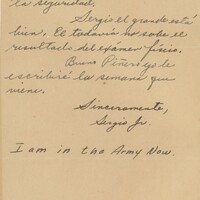 la seguridad.
Sergio el grande está
bien. El todavía no sabe el
resultado del exámen físico.
Bueno Piñero yo le
escribiré la semana que
viene.
Sinceramente,
Sergio Jr.
I am in the Army Now.